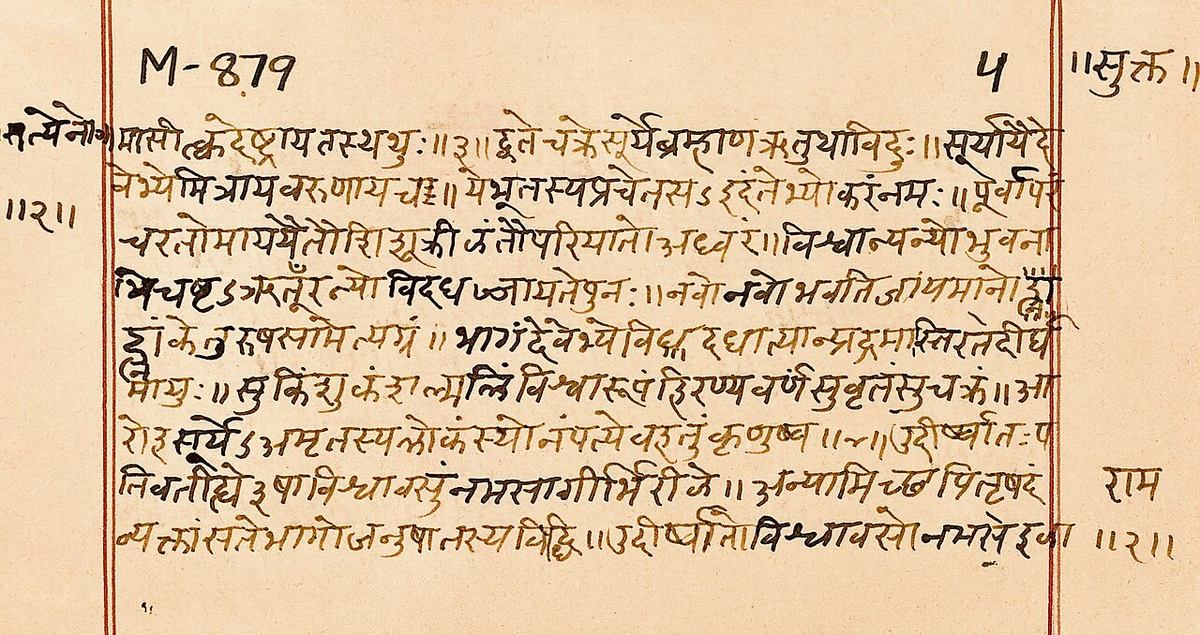 M-879
५
॥सुक्त॥
मासीत्क्वदेष्ट्रायतस्थथुः॥३॥द्वेतेचक्रेसूर्येब्रम्हाणऋतुथाविदुः॥सूर्यायैदे
वेभ्येमित्रायवरुणायच॥येभूतस्यप्रचेतसऽइदंतेभ्योकरंनमः॥पूर्वापरं
॥२॥
चरतोमाययैतौशिशूक्रीळंतौपरियातोअध्वरं॥विश्वान्यन्योभुवना
भिचष्टऽऋतूँरन्योविदधज्जायतेपुनः॥नवोनवोभवतिजायमानो
केतुरुषसामेत्यग्रं॥भागंदेवेभ्योविदधात्यायन्प्रचंद्रमास्तिरतेदीर्घ
मायुः॥सुकिंशुकंशल्मलिंविश्वारूपंहिरण्यवर्णंसुवृतंसुचक्रं॥आ
रोहसूर्येऽअमृतस्यलोकंस्योनंपत्येवहतुंकृणुष्व॥४॥उदीर्ष्वातःप
तिवतीह्ये३षाविश्वावसुंनमसागीर्भिरीळे॥अन्यामिच्छपितृषदं
राम
व्यक्तांसतेभागोजनुषातस्यविद्धि॥उदीर्ष्वातोविश्वावसोनमसेळा
॥२॥